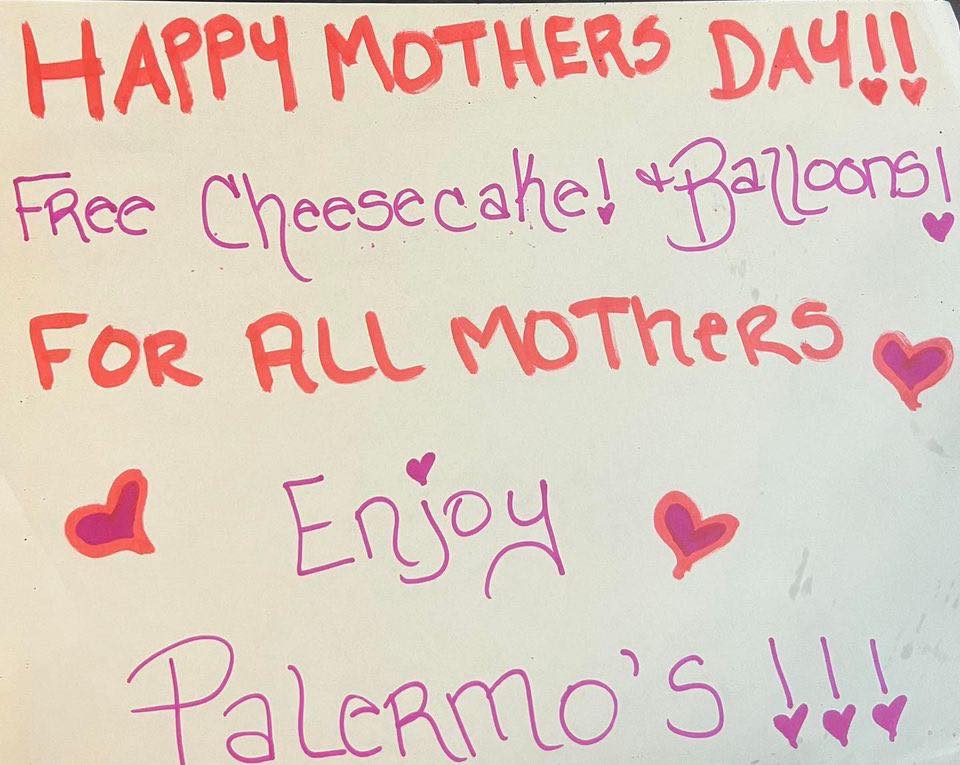 HAPPY MOTHERS DAY!!
FRee Cheesecake! & Balloons!
FOR ALL MOTheRS
Enjoy
PaLeRmo's !!!